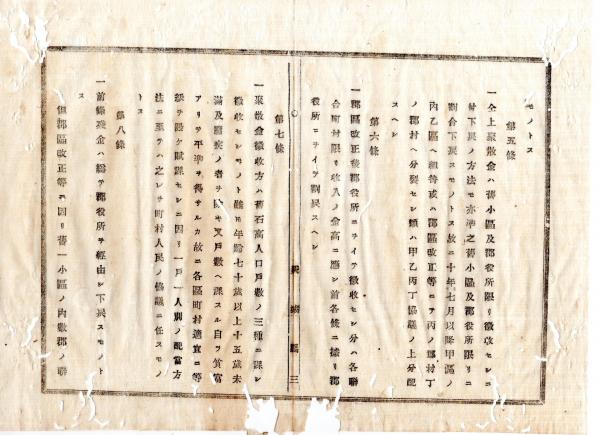 モノトス
第五條
一仝上聚散金ハ舊小區及郡役所限リ徴收セシニ
付下戻ノ方法モ亦準之舊小區及郡役所限リニ
割合下戻スモノトス故ニ十年七月以降甲區ノ
丙乙區ヘ組替或ハ郡區改正等ニテ丙ノ郡村丁
ノ郡村ヘ分裂セシ類ハ甲乙丙丁協議ノ上分配
スヘシ
第六條
一郡區改正後郡役所ニヲイテ徴收セシ分ハ各聯
合町村限リ收入ノ金高ニ應シ前各條ニ據リ郡
役所ニヲイテ割戻スヘシ
三
第七條
一聚散金徴收方ハ舊石高人口戸數ノ三種ニ課シ
徴收セシモノト雖モ年齡七十歳以上十五歳未
滿及癈疾ノ者ヲ除キ又戸數ヘ課スル自ラ貧富
アリテ平準ヲ得サルカ故ニ各區町村適宜ニ等
級ヲ設ケ賦課セシニ因リ一戸一人別ノ配當方
法ニ至テハ之レヲ町村人民ノ協議ニ任スモノ
トス
第八條
一前條殘金ハ總テ郡役所ヲ經由シ下戻スモノト
ス
但郡區改正等ニ因リ舊一小區ノ内數郡ノ聯